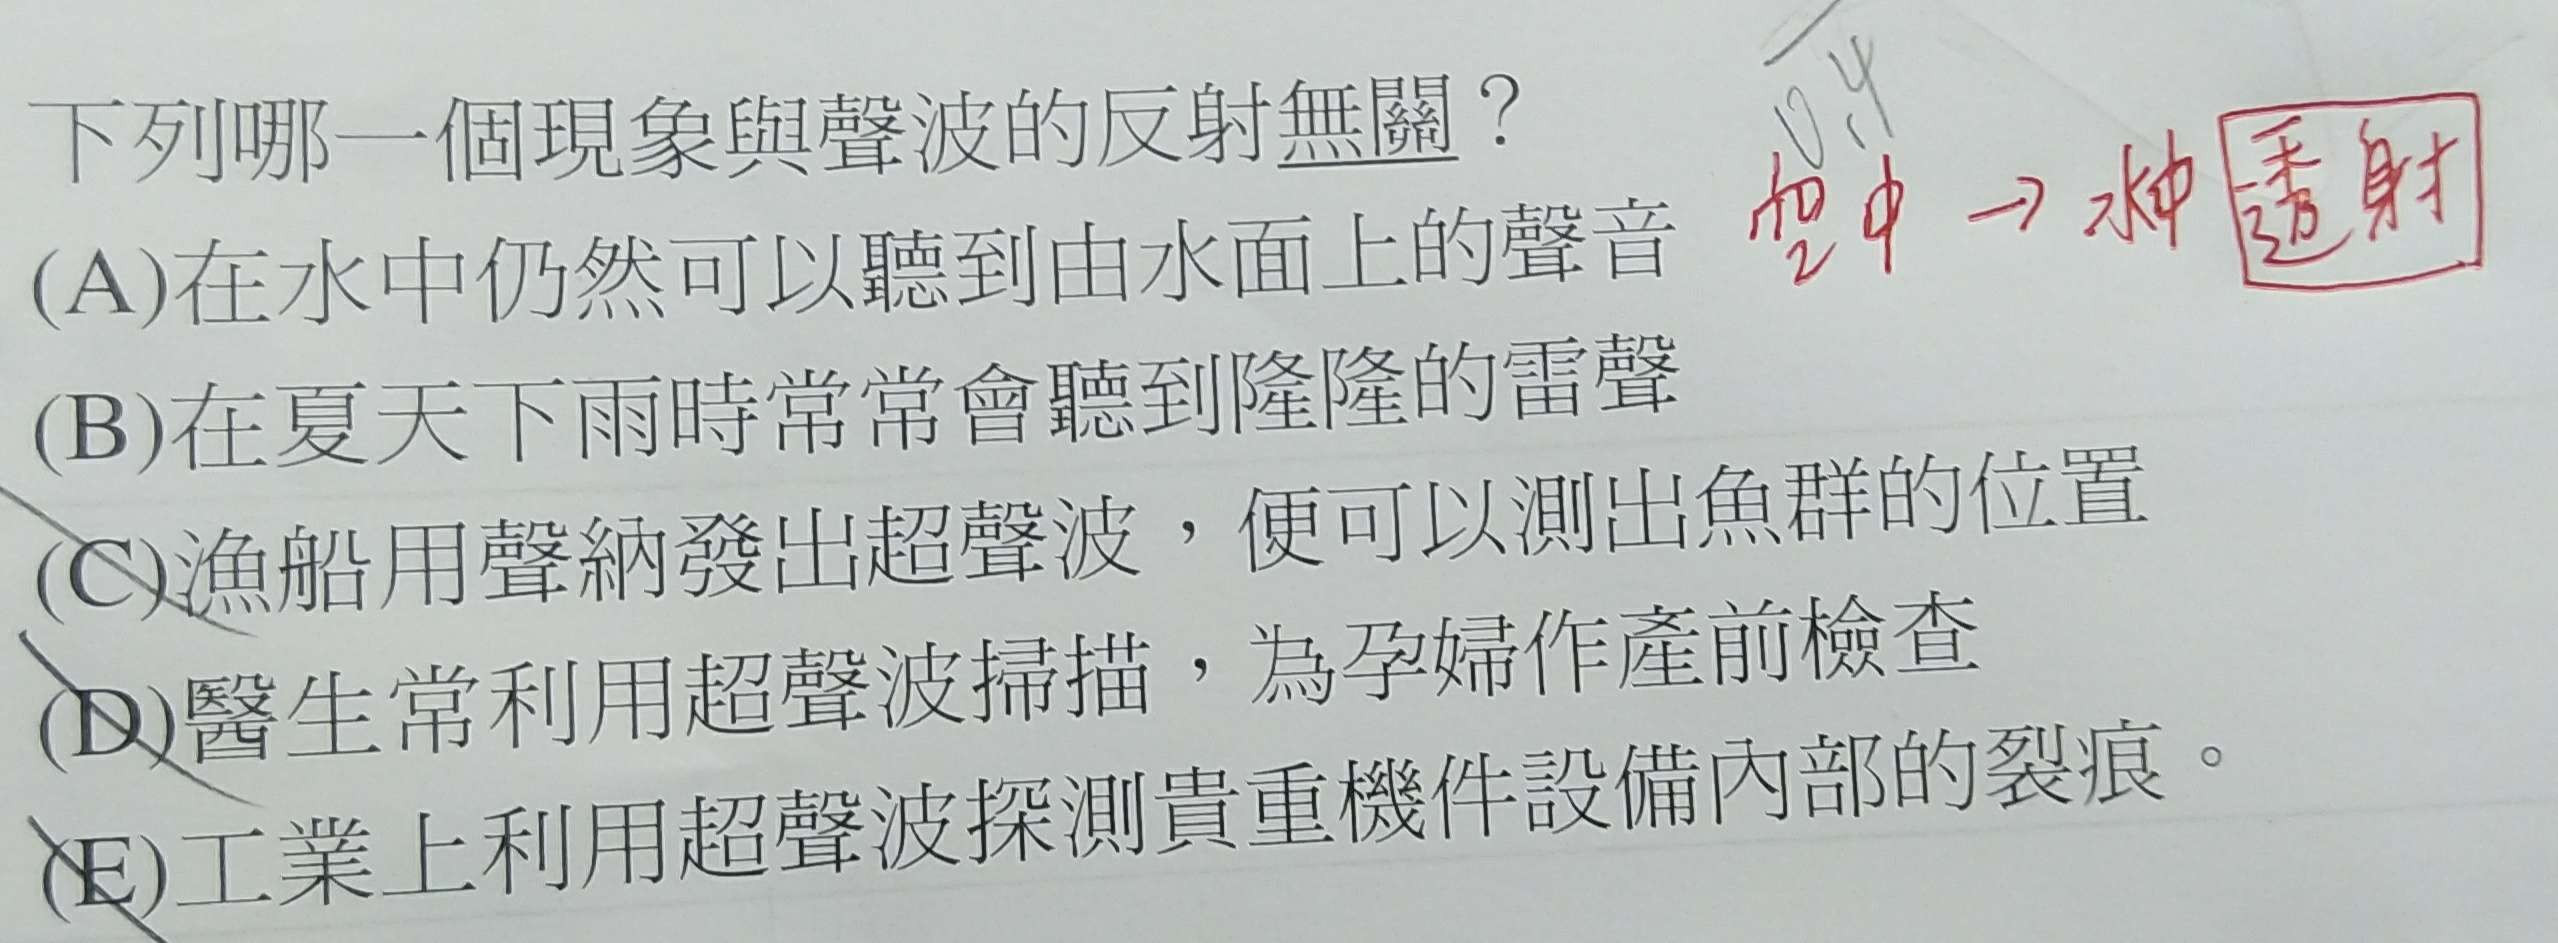 0.4
下列哪一個現象與聲波的反射無關？
(A)在水中仍然可以聽到由水面上的聲音 空中 → 水中 透射
(B)在夏天下雨時常常會聽到隆隆的雷聲
(C)漁船用聲納發出超聲波，便可以測出魚群的位置
(D)醫生常利用超聲波掃描，為孕婦作產前檢查
(E)工業上利用超聲波探測貴重機件設備內部的裂痕。